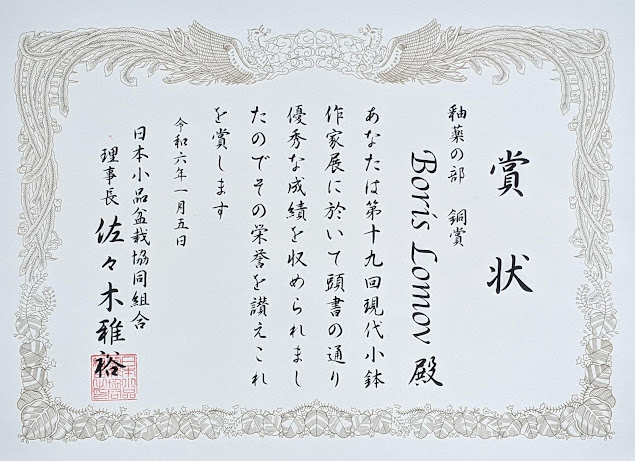 賞状
釉薬の部 銅賞
Boris Lomov 殿
あなたは第十九回現代小鉢
作家展に於いて頭書の通り
優秀な成績を収められまし
たのでその栄誉を讃えこれ
を賞します
令和六年一月五日
日本小品盆栽協同組合
理事長 佐々木雅裕